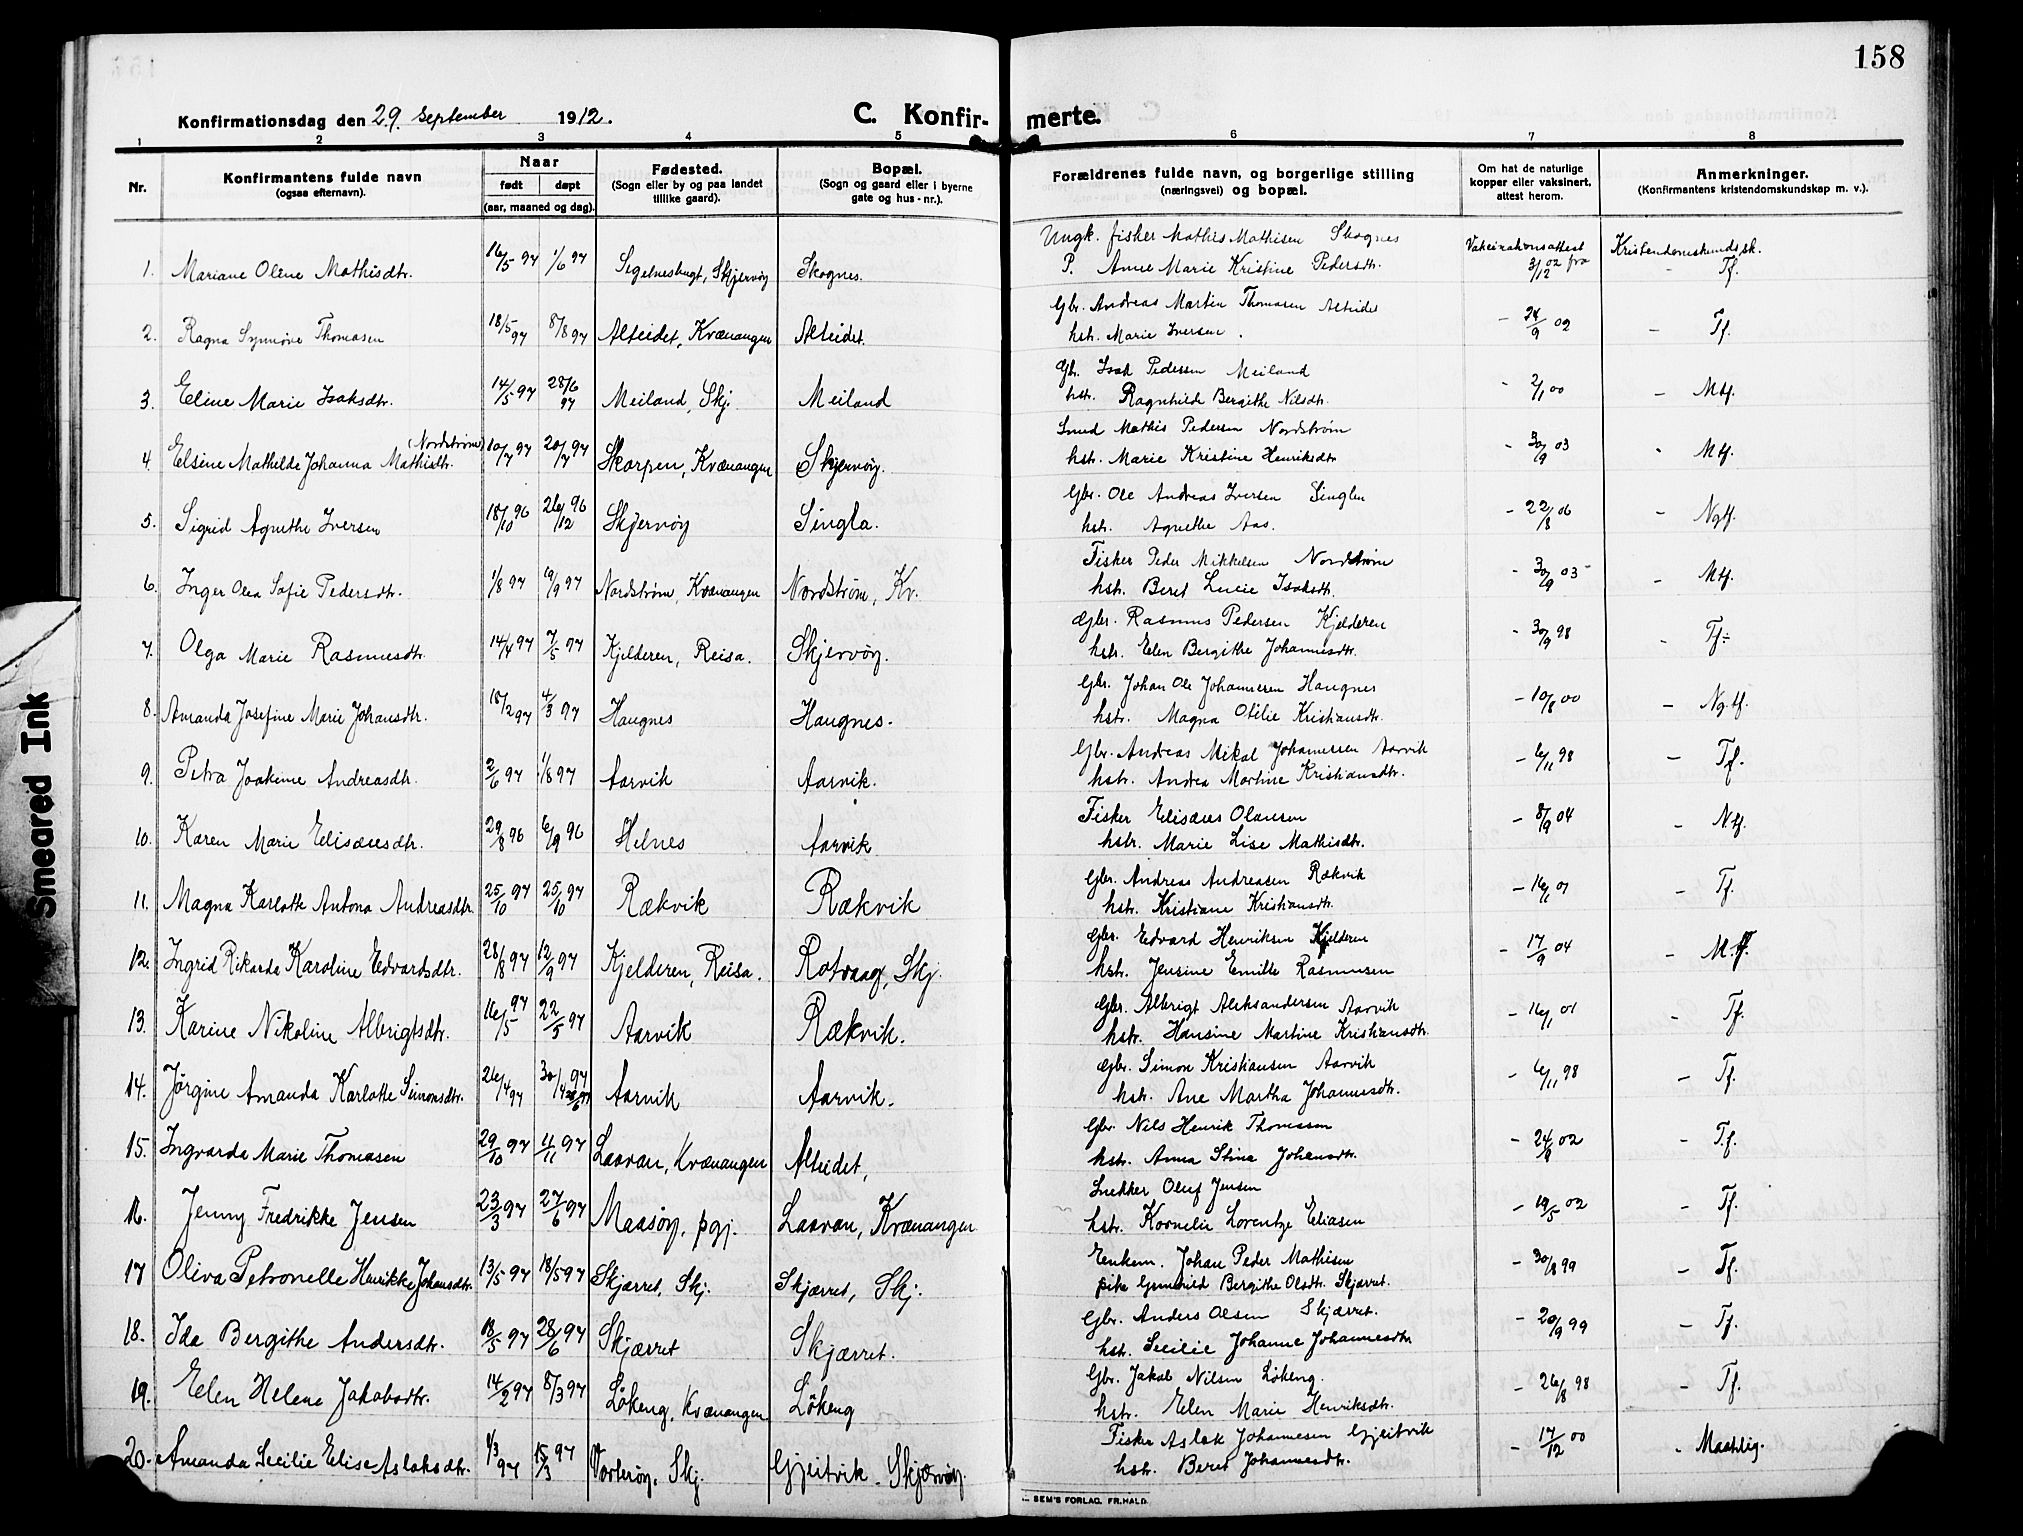 158
Konfirmationsdag den 29. september 1912.
C. Konfirmerte.
1 2 3 4 5 6 7 8
Nr.
Konfirmantens fulde navn
(ogsaa efternavn).
Naar
født døpt
(aar, maaned og dag).
Fødested.
(Sogn eller by og paa landet
tillike gaard).
Bopæl.
(Sogn og gaard eller i byerne
gate og hus-nr.).
Forældrenes fulde navn, og borgerlige stilling
(næringsvei) og bopæl.
Om hat de naturlige
kopper eller vaksinert,
attest herom.
Anmerkninger.
(Konfirmantens kristendomskundskap m. v.).
Ungk. fisker Mathis Mathisen Skognes Vaksinationsattest Kristendomskundsk.
1. Mariane Oline Mathisdtr. 16/5 97 1/6 97 Segelnesbugt, Skjervöy Skognes. P. Anne Marie Kristine Pedersdtr. 3/12 02 fra - Tf.
Gbr. Andreas Martin Thomasen Alteidet
2. Ragna Synnöve Thomasen 18/5 97 8/8 97 Alteidet, Kvænangen Alteidet. hstr. Marie Iversen. - 24/9 02 - Tf.
Gbr. Isak Pedersen Meiland
3. Eline Marie Isaksdtr. 14/5 97 28/6 97 Meiland, Skj. Meiland hstr. Ragnhilde Bergithe Nilsdtr. - 2/1 00 - Mtf.
(Nordström) Smed Mathis Pedersen Nordström
4. Elsine Mathilde Johanna Mathisdtr. 10/7 97 20/7 97 Skorpen, Kvænangen Skjervöy. hstr. Marie Kristine Henriksdtr - 30/9 03 - Mtf.
Gbr. Ole Andreas Iversen Singlen
5. Sigrid Agnethe Iversen 18/10 96 26/12 96 Skjervöy Singla. hstr. Agnethe Aas. - 22/8 06 - Ngtf.
Fisker Peder Mikkelsen Nordström
6. Inger Olea Sofie Pedersdtr. 1/8 97 19/9 97 Nordström, Kvænangen Nordström, Kv. hstr. Beret Lucie Isaksdtr. - 30/9 03 - Mtf.
Gbr. Rasmus Pedersen Kjelderen
7. Olga Marie Rasmusdtr. 14/4 97 7/5 97 Kjelderen, Reisa. Skjervöy. hstr. Elen Bergithe Johannesdtr. - 30/9 98 - Tf÷
Gbr. Johan Ole Johannesen Haugnes
8. Amanda Josefine Marie Johansdtr. 18/2 97 4/3 97 Haugnes Haugnes. hstr. Magna Otilie Kristiansdtr. - 10/8 00 - Ng.tf.
Gbr. Andreas Mikal Johannesen Aarvik
9. Petra Joakime Andreasdtr. 2/6 97 1/8 97 Aarvik Aarvik. hstr. Andrea Martine Kristiansdtr. - 6/11 98 - Tf.
Fisker Elisæus Olausen
10. Karen Marie Elisæusdtr. 29/8 96 6/9 96 Helnes Aarvik hstr. Marie Lise Mathisdtr. - 8/9 04 - Ntf.
Gbr. Andreas Andreasen Rækvik
11. Magna Karlotte Antona Andreasdtr. 25/10 97 25/10 97 Rækvik Rækvik hstr. Kristiane Kristiansdtr. - 16/1 01 - Tf.
Gbr. Edvard Henriksen Kjelderen
12. Ingrid Rikarda Karoline Edvardsdtr. 28/8 97 12/9 97 Kjelderen, Reisa. Rotvaag, Skj. hstr. Jensine Emilie Rasmusen - 17/9 04 - M.tf.
Gbr. Albrigt Aleksandersen Aarvik
13. Karine Nikoline Albrigtsdtr. 16/5 97 22/5 97 Aarvik Rækvik. hstr. Hansine Martine Kristiansdtr. - 16/1 01 - Tf.
Gbr. Simon Kristiansen Aarvik
14. Jörgine Amanda Karlotte Simonsdtr. 26/4 97 30/4 97 Aarvik Aarvik. hstr. Ane Martha Johannesdtr. - 6/11 98 - Tf.
Gbr. Nils Henrik Thomasen
15. Ingvarda Marie Thomasen 29/10 97 4/11 97 Laavan, Kvænangen Alteidet, hstr. Anna Stina Johansdtr. - 24/9 02 - T.f.
Snekker Oluf Jensen
16. Jenny Fredrikke Jensen 23/3 97 27/6 97 Maasöy, pgj. Laavan, Kvænangen hstr. Kornelie Lorentze Eliasen - 19/5 02 - Tf.
Enkem. Johan Peder Mathisen
17 Oliva Petronelle Henrikke Johansdtr. 13/5 97 18/5 97 Skjærret, Skj. Skjærret, Skj. pike Gunhild Bergithe Olsdtr. Skjærret. - 30/8 99 - Tf.
Gbr. Anders Olsen Skjærret.
18. Ida Bergithe Andersdtr. 18/5 97 28/6 97 Skjærret Skjærret. hstr. Secilie Johanne Johannesdtr - 20/9 99 - Tf.
Gbr. Jakob Nilsen Lökeng.
19. Elen Helene Jakobsdtr. 14/2 97 8/3 97 Lökeng, Kvænangen Lökeng hstr. Elen Marie Henriksdtr. - 26/8 98 - Tf.
Fisker Aslak Johannesen Gjeitvik
20. Amanda Secilie Elise Aslaksdtr. 1/3 97 15/3 97 Vorteröy, Skj. Gjeitvik - Skjervöy. hstr. Beret Johannesdtr. - 17/12 00 - Maatelig.
SEM'S FORLAG, FR.HALD.
Smeared Ink